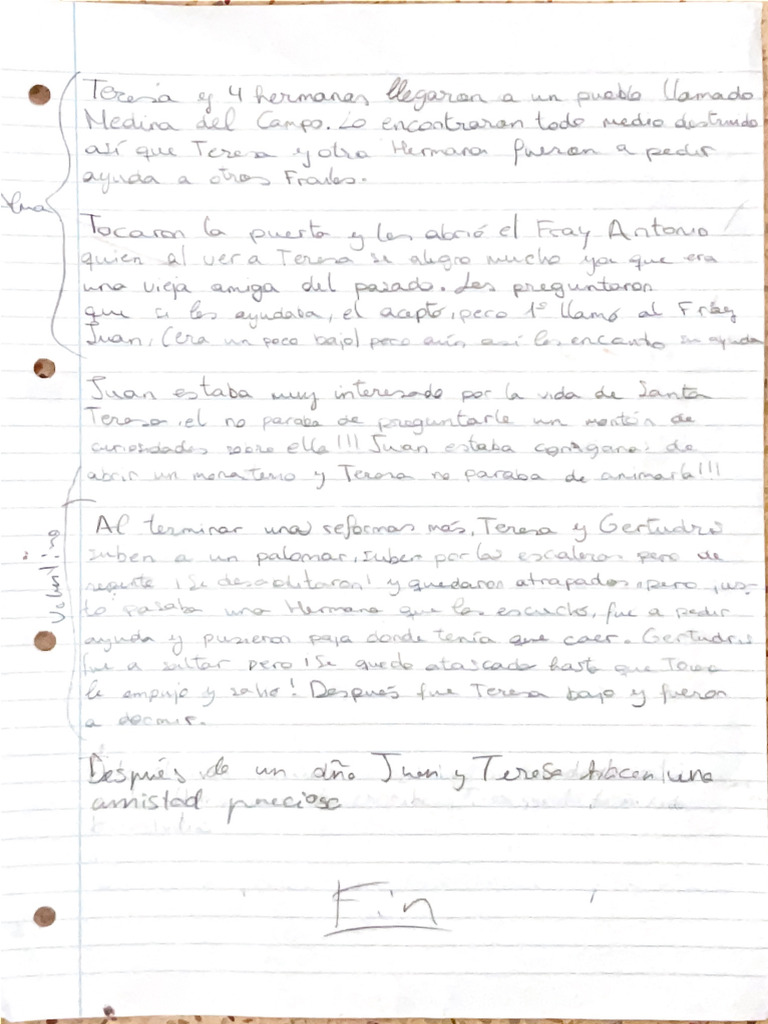 Teresa y 4 hermanas llegaron a un pueblo llamado
Medina del Campo. Lo encontraron todo medio destruido
así que Teresa y otra Hermana fueron a pedir
ayuda a otros Frailes.
Tocaron la puerta y les abrió el Fray Antonio
quien al ver a Teresa se alegro mucho ya que era
una vieja amiga del pasado. Les preguntaron
que si les ayudaba, el acepto, pero 1º llamó al Fray
Juan, (era un poco bajo) pero aún así les encanto su ayuda
Juan estaba muy interesado por la vida de Santa
Teresa, el no paraba de preguntarle un montón de
curiosidades sobre ella!!! Juan estaba con ganas de
abrir un monasterio y Teresa no paraba de animarla!!!
Voluntino
Al terminar unas reformas más, Teresa y Gertrudris
suben a un palomar, suben por las escaleras pero de
repente ¡Se desabilitaron! y quedaron atrapados, pero jus-
to pasaba una Hermana que las escucho, fue a pedir
ayuda y pusieron paja donde tenía que caer. Gertrudris
fue a saltar pero ¡Se quedo atascada hasta que
le empujo y salio! Después fue Teresa bajo y fueron
a dormir.
Después de un año Juan y Teresa hacen una
amistad preciosa
Fin